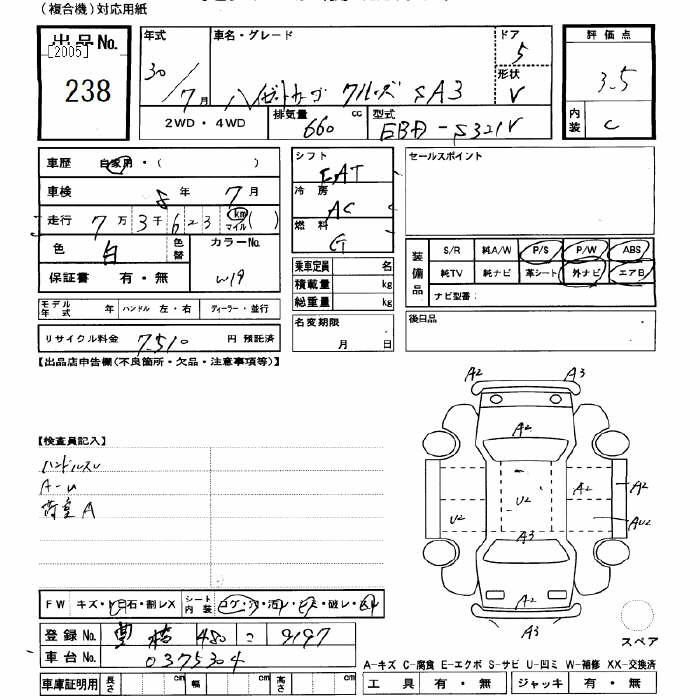 (複合機)対応用紙
出品No.
[2005]
238
年式
30/7月
車名・グレード
ハイゼットカーゴ クルーズ SA3
ドア
5
形状
V
2WD・4WD
排気量
660 cc
型式
EBD-S321V
評価点
3.5
内装
C
車歴 自家用・( )
車検 8年 7月
走行 7万3千623 km マイル ( )
色 白 色替
カラーNo.
W19
保証書 有・無
モデル年式 年 ハンドル 左・右 ディーラー・並行
リサイクル料金 7510 円 預託済
シフト
FAT
冷房
AC
燃料
G
乗車定員 名
積載量 kg
総重量 kg
名変期限
月 日
セールスポイント
装備品
S/R 純A/W P/S P/W ABS
純TV 純ナビ 革シート 外ナビ エアB
ナビ型番:
後日品
【出品店申告欄(不良箇所・欠品・注意事項等)】
【検査員記入】
ハンドルスレ
A-U
荷室A
A2 A3
A2
U2 A2 A2
U2 AU2
A3
A2
A3
スペア
FW キズ・トビ石・割レX シート内装 コゲ・穴・汚レ・ビス・破レ・
登録No. 480 9197
車台No. 0375304
車庫証明用 長さ cm 幅 cm 高さ cm
A-キズ C-腐食 E-エクボ S-サビ U-凹ミ W-補修 XX-交換済
工具 有・無 ジャッキ 有・無